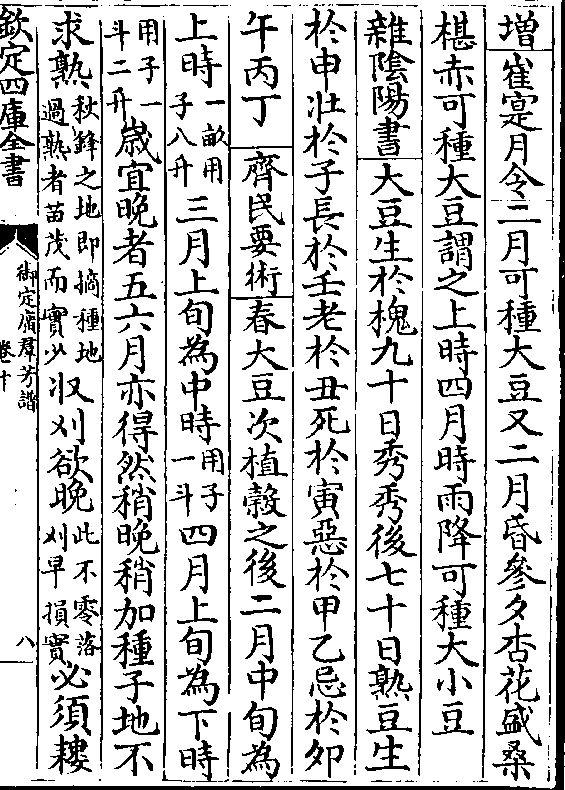 增 崔寔月令二月可種大豆又二月昏參夕杏花盛桑
椹赤可種大豆謂之上時四月時雨降可種大小豆
雜陰陽書 大豆生於槐九十日秀秀後七十日熟豆生
於申壯於子長於壬老於丑死於寅惡於甲乙忌於卯
午丙丁 齊民要術 春大豆次植穀之後二月中旬為
上時一畝用子八升三月上旬為中時用子一斗四月上旬為下時
用子一斗二升歲宜晚者五六月亦得然稍晚稍加種子地不
求熟秋鋒之地即摘種地過熟者苗茂而實少収刈欲晚此不零落刈早損實必須耬
欽定四庫全書
御定廣羣芳譜
卷十
八